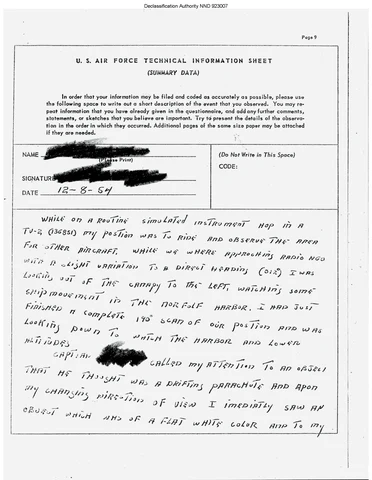 Declassification Authority NND 923007
Page 9
U. S. AIR FORCE TECHNICAL INFORMATION SHEET
(SUMMARY DATA)
In order that your information may be filed and coded as accurately as possible, please use
the following space to write out a short description of the event that you observed. You may re-
peat information that you have already given in the questionnaire, and add any further comments,
statements, or sketches that you believe are important. Try to present the details of the observa-
tion in the order in which they occurred. Additional pages of the same size paper may be attached
if they are needed.
NAME
(Please Print)
SIGNATURE
DATE 12-8-54
(Do Not Write in This Space)
CODE:
WHILE ON A ROUTINE SIMULATED INSTRUMENT HOP IN A
TV-2 (136831) MY POSTION WAS TO RIDE AND OBSERVE THE AREA
FIR OTHER AIRCRAFT. WHILE WE WHERE APPROACHING RADIO NGU
WITH A SLIGHT VARIATION TO A DIRECT HEADING (015) I WAS
LOOKING OUT OF THE CANAPY TO THE LEFT, WATCHING SOME
SHIP MOVEMENT IN THE NORFOLK HARBOR. I HAD JUST
FINISHED A COMPLETE 190° SCAN OF OUR POSTION AND WAS
LOOKING DOWN TO WHICH THE HARBOR AND LOWER
ALTITUDES
CAPT. CALLED MY ATTENTION TO AN OBJECT
THAT HE THOUGHT WAS A DRIFTING PARACHUTE AND APON
MY CHANGING DIRECTION OF VIEW I IMEDIATLY SAW AN
OBJECT WHICH WAS OF A FLAT WHITE COLOR AND TO MY